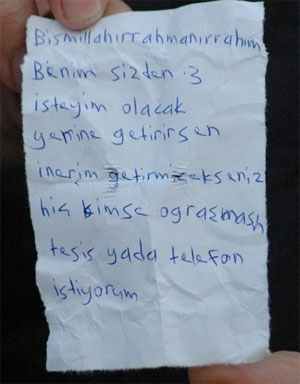 Bismillahirrahmanırrahim
Benim sizden 3
isteyim olacak
yerine getirirsen
inerim getirmezekseniz
hiç kimse ograşmasın
tesis yada telefon
istiyorum